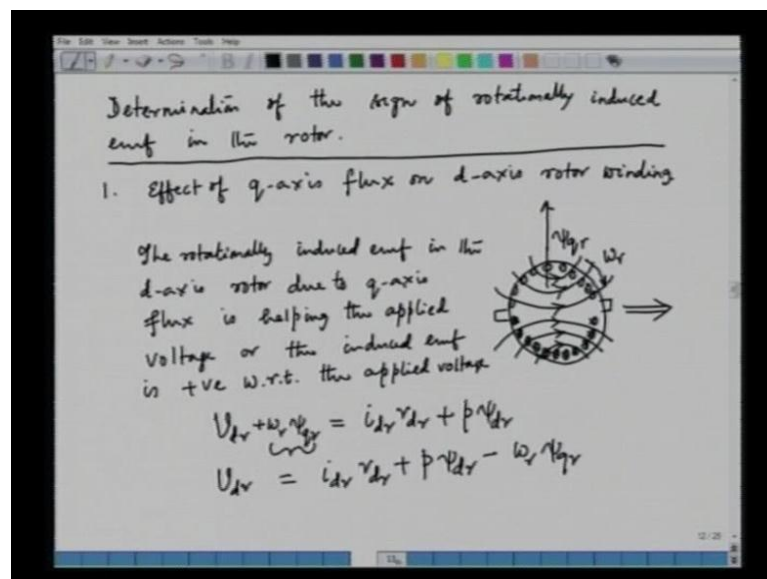 File Edit View Insert Actions Tools Help
Determination of the sign of rotationally induced
emf in the rotor.
1. Effect of q-axis flux on d-axis rotor winding
The rotationally induced emf in the
d-axis rotor due to q-axis
flux is helping the applied
voltage or the induced emf
is +ve w.r.t. the applied voltage
ψqr
ωr
Vdr + ωr ψqr = idr rdr + pψdr
Vdr = idr rdr + pψdr - ωr ψqr
12/25